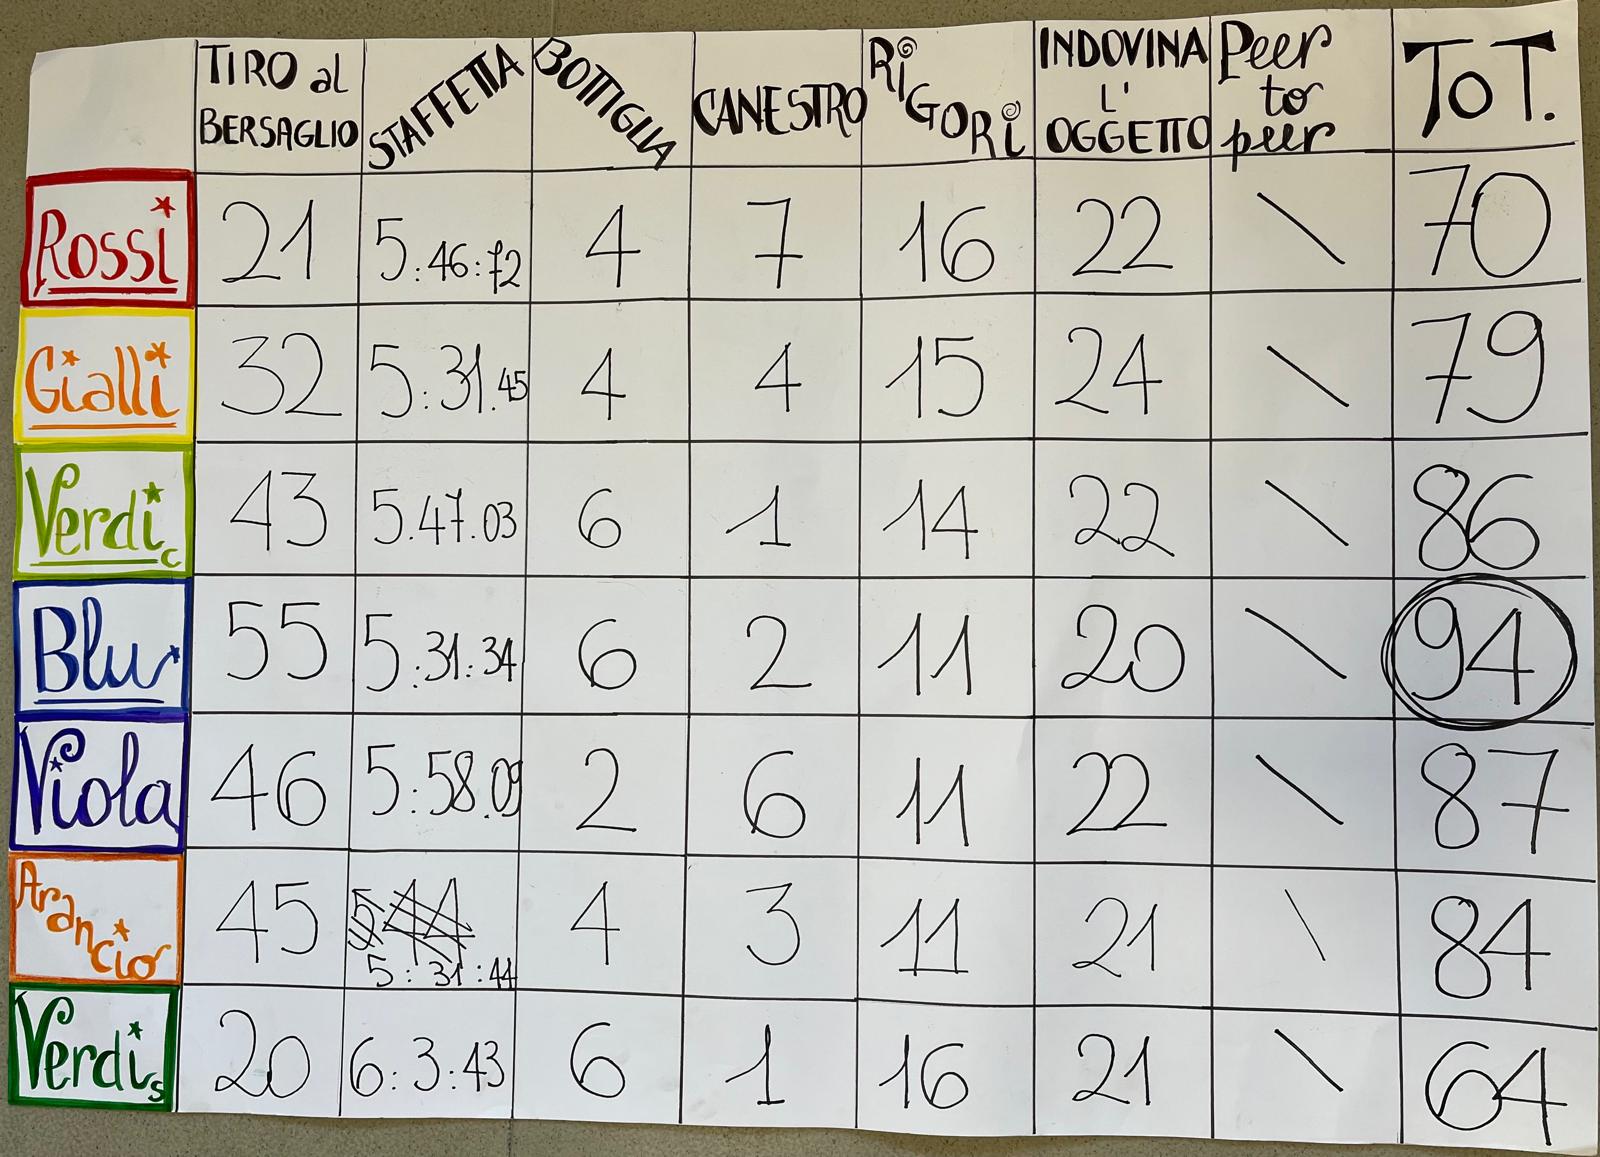 TIRO al BERSAGLIO STAFFETTA BOTTIGLIA CANESTRO RiGORi INDOVINA L' OGGETTO Peer to peer ToT.
Rossi 21 5:46:72 4 7 16 22 \ 70
Gialli 32 5:31.45 4 4 15 24 \ 79
Verdi c 43 5.47.03 6 1 14 22 \ 86
Blu 55 5:31:34 6 2 11 20 \ 94
Viola 46 5:58.09 2 6 11 22 \ 87
Arancio 45 5:31:44 4 3 11 21 \ 84
Verdi s 20 6:3:43 6 1 16 21 \ 64